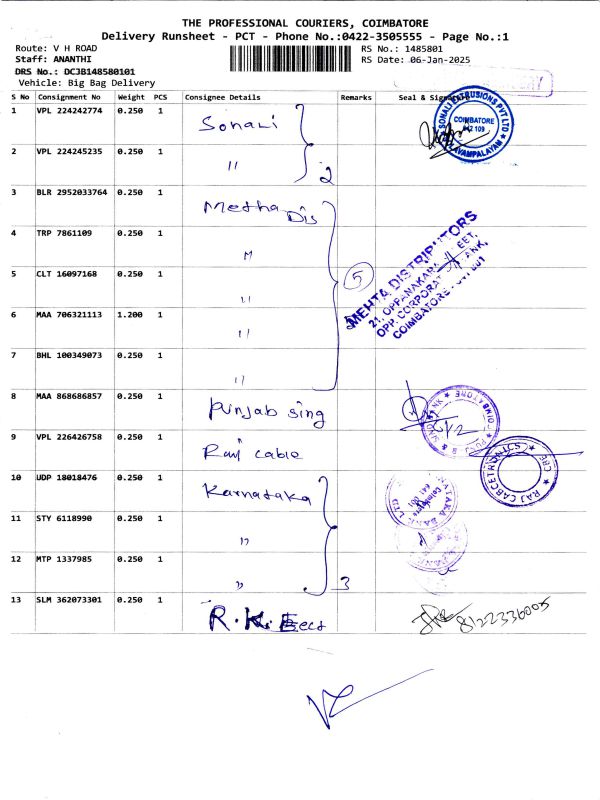 THE PROFESSIONAL COURIERS, COIMBATORE
Delivery Runsheet - PCT - Phone No.:0422-3505555 - Page No.:1
Route: V H ROAD
RS No.: 1485801
Staff: ANANTHI
RS Date: 06-Jan-2025
DRS No.: DCJB148580101
Vehicle: Big Bag Delivery
S No Consignment No Weight PCS Consignee Details Remarks Seal &
1 VPL 224242774 0.250 1 Sonali
SONALI EXTRUSIONS PVT LTD
COIMBATORE
2 VPL 224245235 0.250 1 " 2
3 BLR 2952033764 0.250 1 Metha Dis
4 TRP 7861109 0.250 1 "
5 CLT 16097168 0.250 1 " 5
MEHTA DISTRIBUTORS
21, OPPANAKARA
OPP. CORPORAT
COIMBATORE
6 MAA 706321113 1.200 1 "
7 BHL 100349073 0.250 1 "
8 MAA 868686857 0.250 1 Punjab sing
9 VPL 226426758 0.250 1 Raj cable
RAJ CABCETRONICS
10 UDP 18018476 0.250 1 Karnataka
11 STY 6118990 0.250 1 "
12 MTP 1337985 0.250 1 " 3
13 SLM 362073301 0.250 1 R.K. Eecs
8122336005